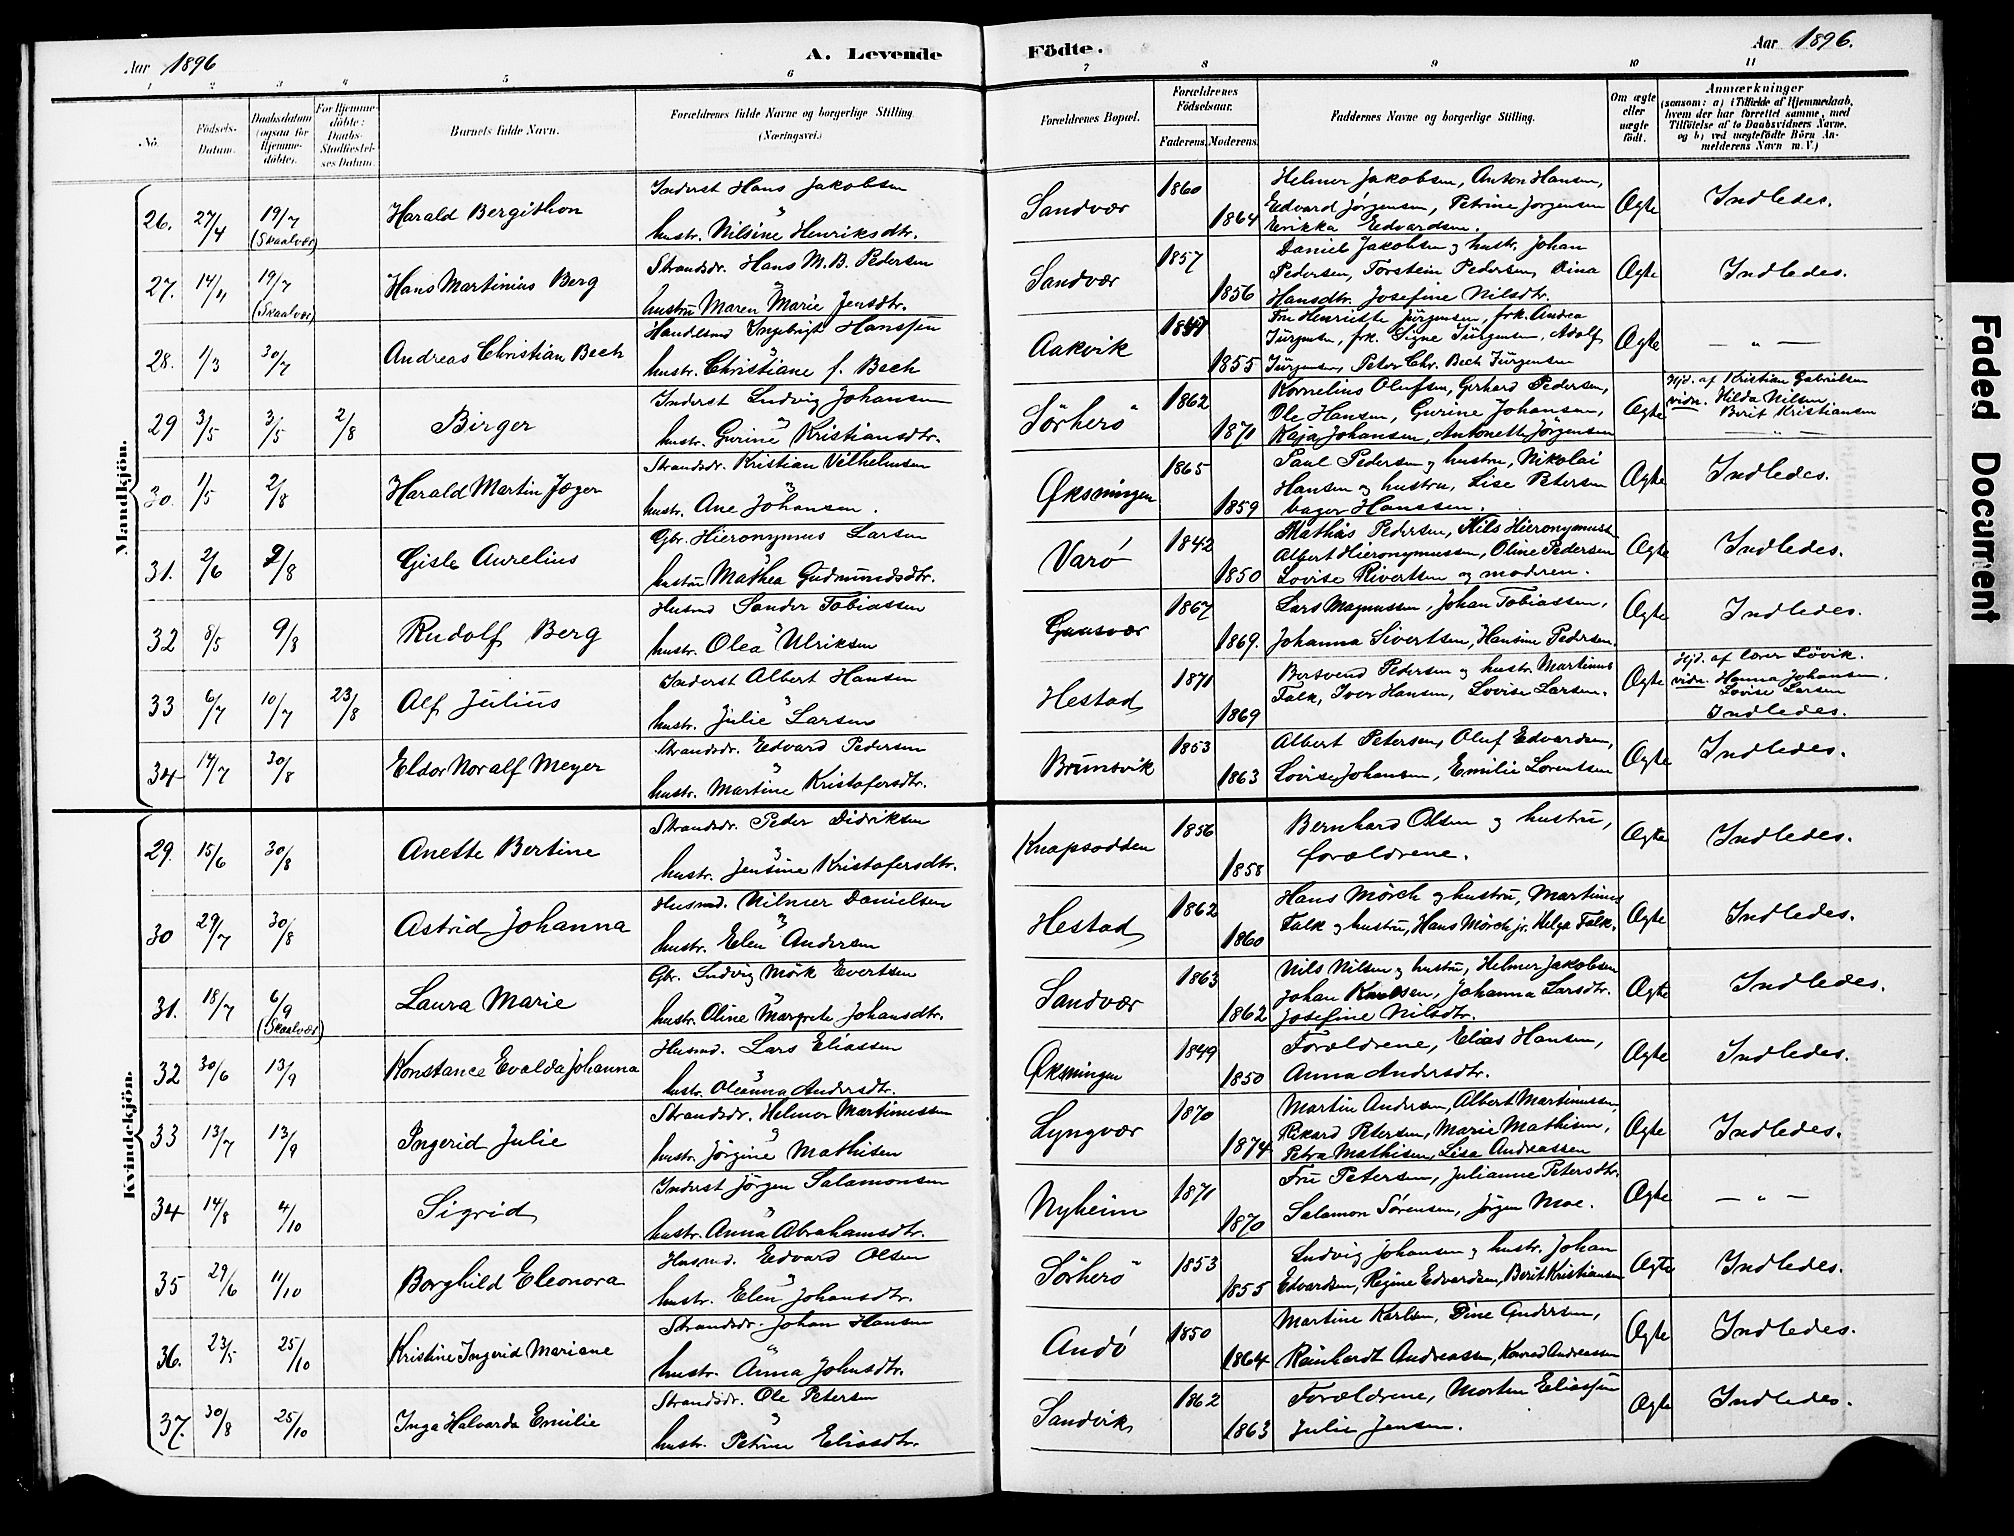 Aar 1896
A. Levende
Födte.
Aar 1896.
1 2 3 4 5 6 7 8 9 10 11
No.
Födsels-Datum.
Daabsdatum (ogsaa for Hjemme-döbte).
For Hjemme-döbte: Daabs-Stadfæstel-ses Datum.
Barnets fulde Navn.
Forældrenes fulde Navne og borgerlige Stilling.
(Næringsvei.)
Forældrenes Bopæl.
Forældrenes Födselsaar.
Faderens. Moderens.
Faddernes Navne og borgerlige Stilling.
Om ægte eller uægte födt.
Anmærkninger
(saasom: a) i Tilfælde af Hjemmedaab, hvem der har forrettet samme, med Tilföielse af to Daabsvidners Navne, og b) ved uægtefödte Börn An-melderens Navn m. V.)
Mandkjön.
26. 27/4 19/7 (Skaalvær) Harald Bergithon
Inderst Hans Jakobsen
hustr. Nilsine Henriksdtr.
Sandvær 1860 1864
Helmer Jakobsen, Anton Hansen,
Edvard Jørgensen, Petrine Jørgensen
Erikka Edvardsen.
Ægte Indledes.
27. 14/4 19/7 (Skaalvær) Hans Martinius Berg
Strandsdr. Hans M. B. Pedersen
hustru Maren Marie Jensdtr.
Sandvær 1857 1856
Daniel Jakobsen og hustr. Johan
Pedersen, Torstein Pedersen,
Hansdtr. Josefine Nilsdtr.
Ægte Indledes.
28. 1/3 30/7 Andreas Christian Bech
Handlsmd Ingebrigt Hanssen
hustr. Christiane f. Bech
Aakvik 1855
Fru Henriette Jürgensen, frk. Andrea
Jürgensen, frk. Signe Jürgensen, Adolf
Jürgensen, Peter Chr. Bech Jürgensen
Ægte — " —
29 3/5 3/5 2/8 Birger
Inderst Ludvig Johansen
hustr. Gurine Kristiansdtr.
Sörherö 1862 1871
Kornelius Olufsen, Gerhard Pedersen,
Ole Hansen, Gurine Johansen,
Kaja Johansen, Antonette Jørgensen
Ægte
Hjd. af Kristian Gabrielsen
vidn. Hilda Nilsen
Berit Kristiansen
— " —
30. 1/5 2/8 Harald Martin Jæger
Strandsdr. Kristian Vilhelmsen
hustr. Ane Johansen.
Øksningen 1865 1859
Paul Pedersen og hustru, Nikolai
Hansen og hustru, Lise Petersen
bager Hanssen.
Ægte Indledes.
31. 2/6 2/8 Gisle Aurelius
Gbr. Hieronymus Larsen
hustru Mathea Gudmundsdtr.
Varö 1842 1850
Mathias Pedersen, Nils Hieronymuss
Albert Hieronymussen, Oline Pedersen
Lovise Rivertsen og moderen.
Ægte Indledes.
32 8/5 9/8 Rudolf Berg
Husmd Sander Tobiassen
hustr. Olea Ulriksen
Gaasvær 1867 1869.
Lars Magnussen, Johan Tobiassen,
Johanna Sivertsen, Hansine Pedersen.
Ægte Indledes.
33 6/7 10/7 23/8 Alf Julius
Inderst Albert Hansen
hustr. Julie Larsen
Hestad 1871 1869
Bersvend Pedersen og hustr. Martinus
Falk, Iver Hansen, Lovise Larsen.
Ægte
Hjd. af lærer Lövik.
vidn. Hanna Johansen.
Lovise Larsen
Indledes.
34 14/7 30/8 Eldor Noralf Meyer
Strandsdr. Edvard Pedersen
hustr. Martine Kristofersdtr.
Brunsvik 1853 1863
Albert Petersen, Oluf Edvardsen,
Lovise Johansen, Emilie Lorentsen
Ægte Indledes.
Kvindekjön.
29. 15/6 30/8 Anette Bertine
Strandsdr. Peder Didriksen
hustr. Jensine Kristofersdtr.
Knapsodden 1856 1858
Bernhard Olsen og hustru,
forældrene.
Ægte Indledes.
30 29/7 30/8 Astrid Johanna
Husmd. Nilmer Danielsen
hustr. Elen Andersen
Hestad 1862 1860
Hans Mörch og hustru, Martinus
Falk og hustru, Hans Mörch jr. Helga Falk.
Ægte Indledes.
31. 18/7 6/9 (Skaalvær) Laura Marie
Gbr. Ludvig Mörk Evertsen
hustr. Oline Margrete Johansdtr.
Sandvær 1863 1862
Nils Nilsen og hustru, Helmer Jakobsen
Johan Knudsen, Johanna Larsdtr.
Josefine Nilsdtr.
Ægte Indledes.
32 30/6 13/9 Konstance Evalda Johanna
Husmd. Lars Eliassen
hustr. Oleanna Andersdtr.
Øksningen 1849 1850
Forældrene, Elias Hansen,
Anna Andersdtr.
Ægte Indledes.
33 13/7 13/9 Ingerid Julie
Strandsdr. Helmer Martinussen
hustr. Jørgine Mathisen
Lyngvær 1870 1874
Martin Andersen, Albert Martinussen,
Rikard Petersen, Marie Mathisen,
Petra Mathisen, Lise Andreassen
Ægte Indledes.
34 14/8 4/10 Sigrid
Inderst Jörgen Salamonsen
hustr. Anna Abrahamsdtr.
Nyheim 1871 1870
Fru Petersen, Julianne Petersdtr.
Salamon Sörensen, Jörgen Moe.
Ægte — " —
35 29/6 11/10 Borghild Eleonora
Husmd. Edvard Olsen
hustr. Elen Johansdtr.
Sörherö 1853 1855
Ludvig Johansen og hustr. Johan
Edvardsen, Regine Edvardsen, Berit Kristiansen
Ægte Indledes.
36. 23/5 25/10 Kristine Ingerid Mariane
Strandsdr. Johan Hansen
hustr. Anna Johnsdtr.
Andö 1850 1864
Martine Karlsen, Dine Andersen,
Reinhardt Andreassen, Konrad Andreassen
Ægte Indledes.
37. 30/8 25/10 Inga Halvarda Emilie
Strandsdr. Ole Petersen
hustr. Petrine Eliasdtr.
Sandvik 1862 1863
Forældrene, Morten Eliassen
Julie Jensen.
Ægte Indledes.
Faded Document